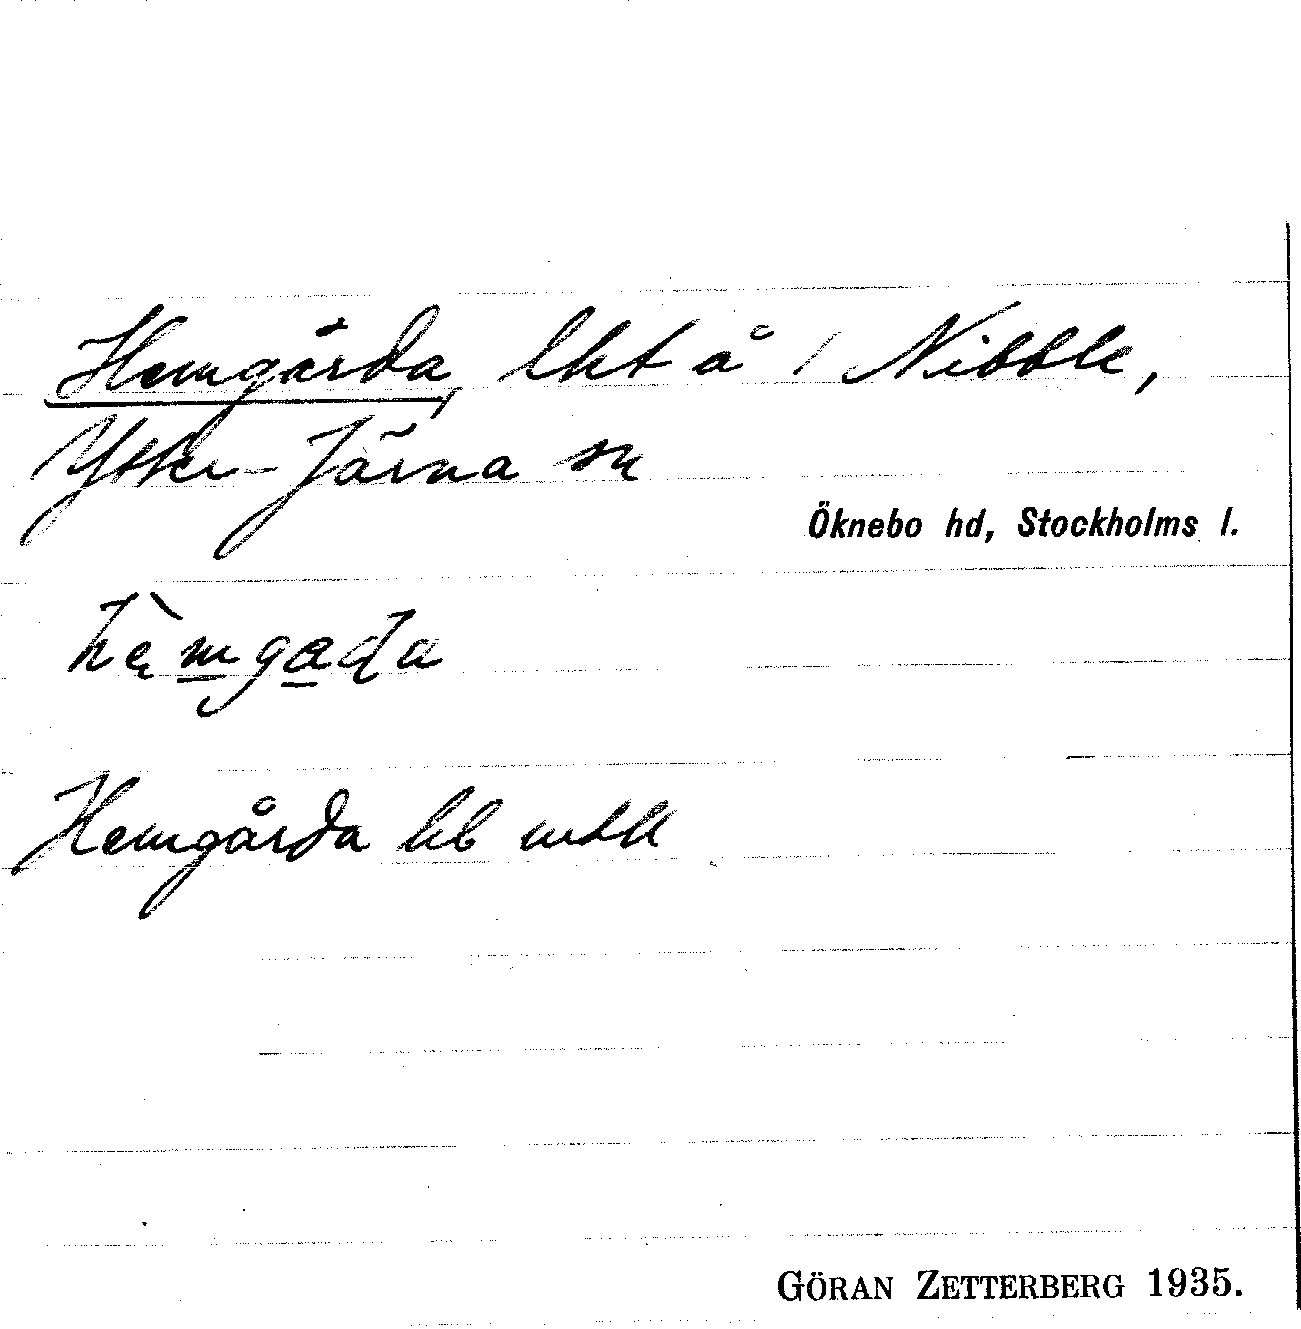 Hemgårda, lht å 1 Nibble,
Ytter-Järna sn
Öknebo hd, Stockholms l.
hèmgaɖa
Hemgårda hb
GÖRAN ZETTERBERG 1935.